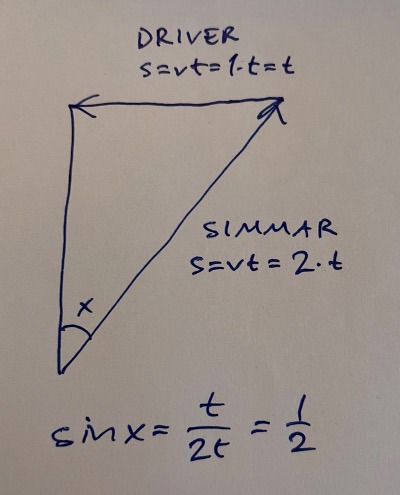 DRIVER
s=vt=1·t=t
SIMMAR
s=vt=2·t
x
sinx= t/2t = 1/2